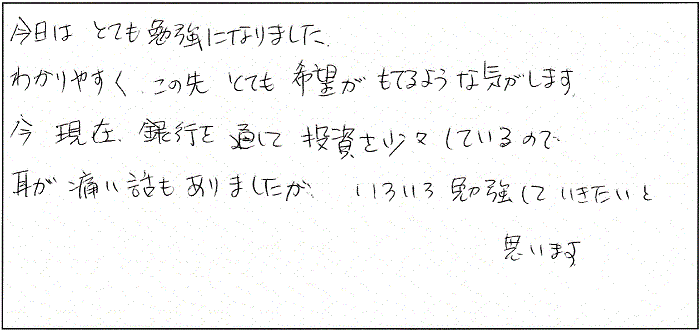 今日は とても勉強になりました.
わかりやすく、この先 とても 希望が もてるような気がします.
今 現在、銀行を 通して 投資を少々 しているので
耳が 痛い話も ありましたが、 いろいろ 勉強していきたいと
思います